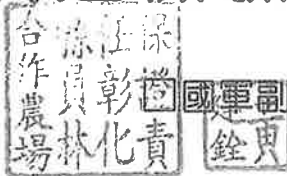 保證責
任彰化
員林
合作農場
國軍副
銓